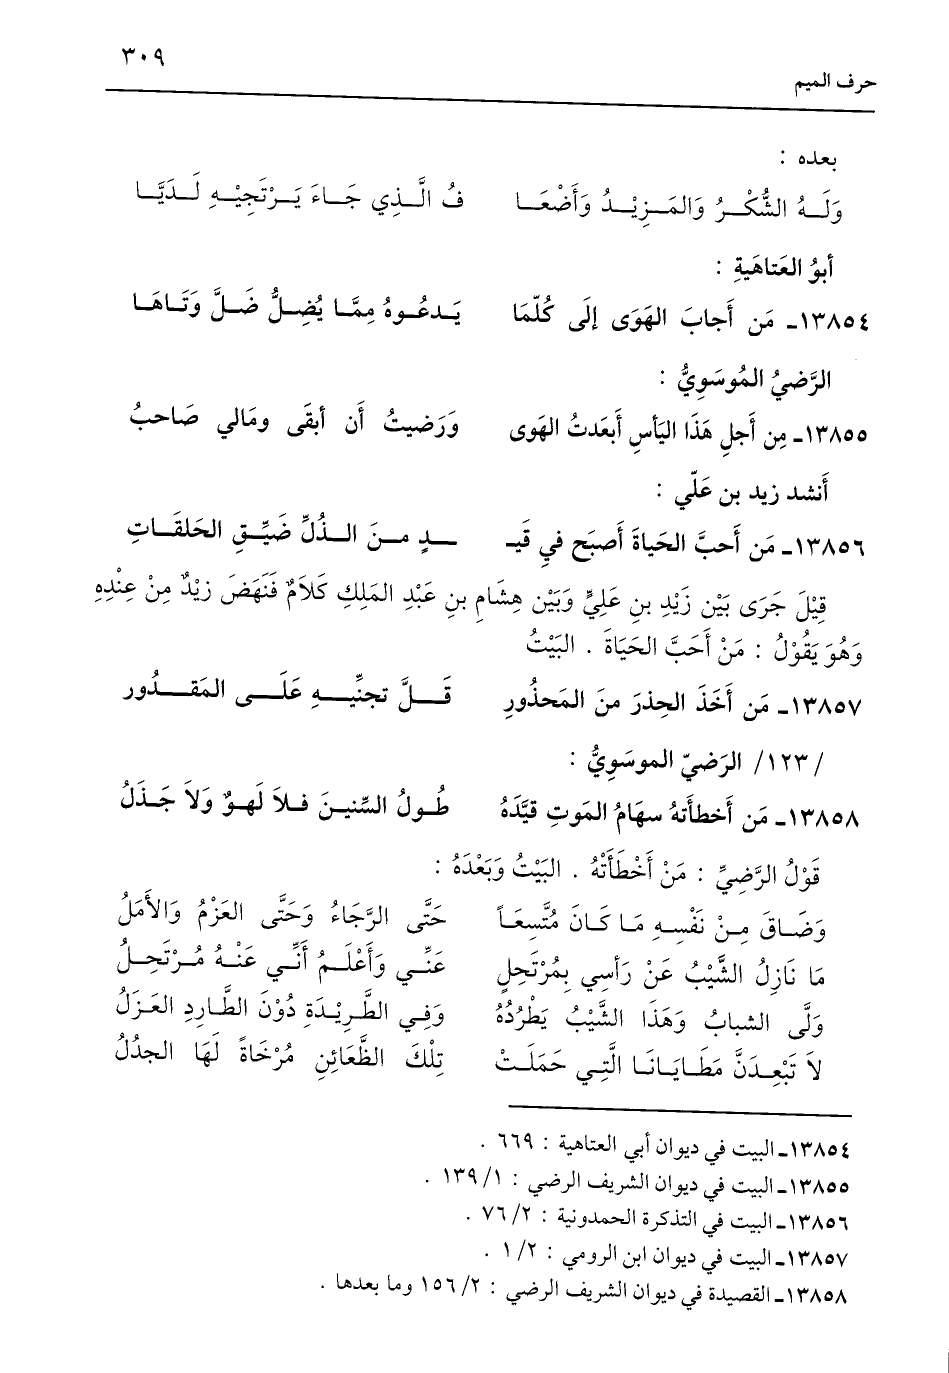 ٣٠٩
حرف الميم
بعده :
وَلَـهُ الشُّكْـرُ وَالمَـزِيْـدُ وَأَضْعَـا فُ الَّـذِي جَـاءَ يَـرْتَجِيْـهِ لَـدَيَّـا
أبوُ العَتاهَيةِ :
١٣٨٥٤ـ مَن أَجابَ الهَوَى إلَى كُلّمَا يَـدعُـوهُ مِمَّـا يُضِـلُّ ضَـلَّ وَتَـاهَـا
الرَّضيُ المُوسَوِيُّ :
١٣٨٥٥ـ مِن أَجلِ هَذَا اليَأسِ أَبعَدتُ الهَوى وَرَضيتُ أَن أبقَى ومَالي صَاحبُ
أَنشد زيد بن عَلّي :
١٣٨٥٦ـ مَن أَحبَّ الحَياةَ أَصبَح فيِ قَيـ ـدٍ مـنَ الـذُلِّ ضَيِّـقِ الحَلقَـاتِ
قِيْلَ جَرَى بَيْن زَيْدِ بنِ عَلِيٍّ وَبَيْن هِشَامِ بنِ عَبْدِ المَلِكِ كَلاَمٌ فَنَهَضَ زيْدٌ مِنْ عِنْدِهِ
وَهُوَ يَقُوْلُ : مَنْ أَحَبَّ الحَيَاةَ . البَيْتُ
١٣٨٥٧ـ مَن أَخَذَ الحِذرَ منَ المَحذُورِ قَـلَّ تجنِّيـهِ عَلَـى المَقـدُور
/١٢٣/ الرَضيّ الموسَوِيُّ :
١٣٨٥٨ـ مَن أَخطأَتهُ سهَامُ المَوتِ قيَّدَهُ طُـولُ السِّنينَ فـلاَ لَهـوٌ وَلاَ جَـذَلُ
قَوْلُ الرَّضِيِّ : مَنْ أَخْطَأَتْهُ . البَيْتُ وَبَعْدَهُ :
وَضَـاقَ مِـنْ نَفْسِـهِ مَـا كَـانَ مُتَّسِعَـاً حَتَّى الرَّجَاءُ وَحَتَّى العَزْمُ وَالأَمَلُ
مَا نَازِلُ الشَّيْبُ عَنْ رَأسِي بِمُرْتَحِلٍ عَنِّـي وَأَعْلَـمُ أَنِّـي عَنْـهُ مُـرْتَحِـلُ
وَلَّى الشبابُ وَهَذَا الشَّيْبُ يَطْرُدُهُ وَفِـي الطَّرِيْدَةِ دُوْنَ الطَّارِدِ العَزَلُ
لاَ تَبْعِـدَنَّ مَطَـايَـانَـا الَّتِـي حَمَلَـتْ تِلْكَ الظَّعَائِنِ مُرْخَاةً لَهَا الجدُلُ
١٣٨٥٤ـ البيت في ديوان أبي العتاهية : ٦٦٩ .
١٣٨٥٥ـ البيت في ديوان الشريف الرضي : ١/ ١٣٩ .
١٣٨٥٦ـ البيت في التذكرة الحمدونية : ٢/ ٧٦ .
١٣٨٥٧ـ البيت في ديوان ابن الرومي : ٢/ ١ .
١٣٨٥٨ـ القصيدة في ديوان الشريف الرضي : ٢/ ١٥٦ وما بعدها .